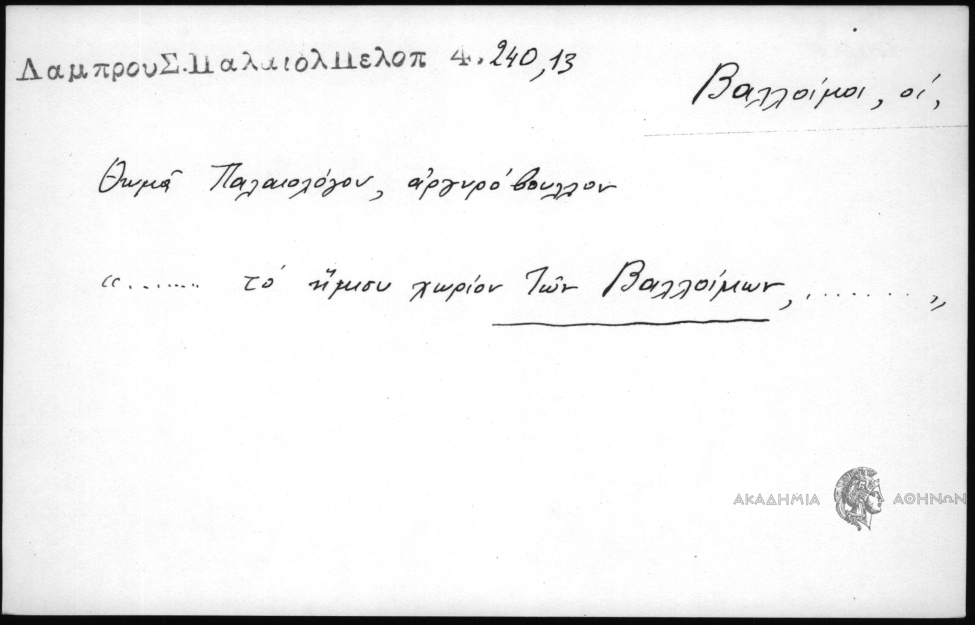 ΛαμπρουΣ.ΠαλαιολΠελοπ 4.240,13
Βαλλοίμοι, οἱ,
Θωμᾶ Παλαιολόγου, ἀργυρόβουλλον
“....... τό ἥμισυ χωρίον τῶν Βαλλοίμων, ........ „
ΑΚΑΔΗΜΙΑ ΑΘΗΝΩΝ